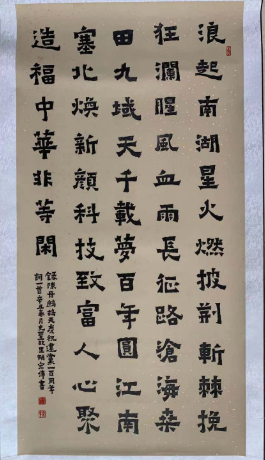 浪起南湖星火燃披荆斬棘挽
狂瀾腥風血雨長征路滄海桑
田九域天千載夢百年圓江南
塞北煥新顔科技致富人心聚
造福中華非等閑